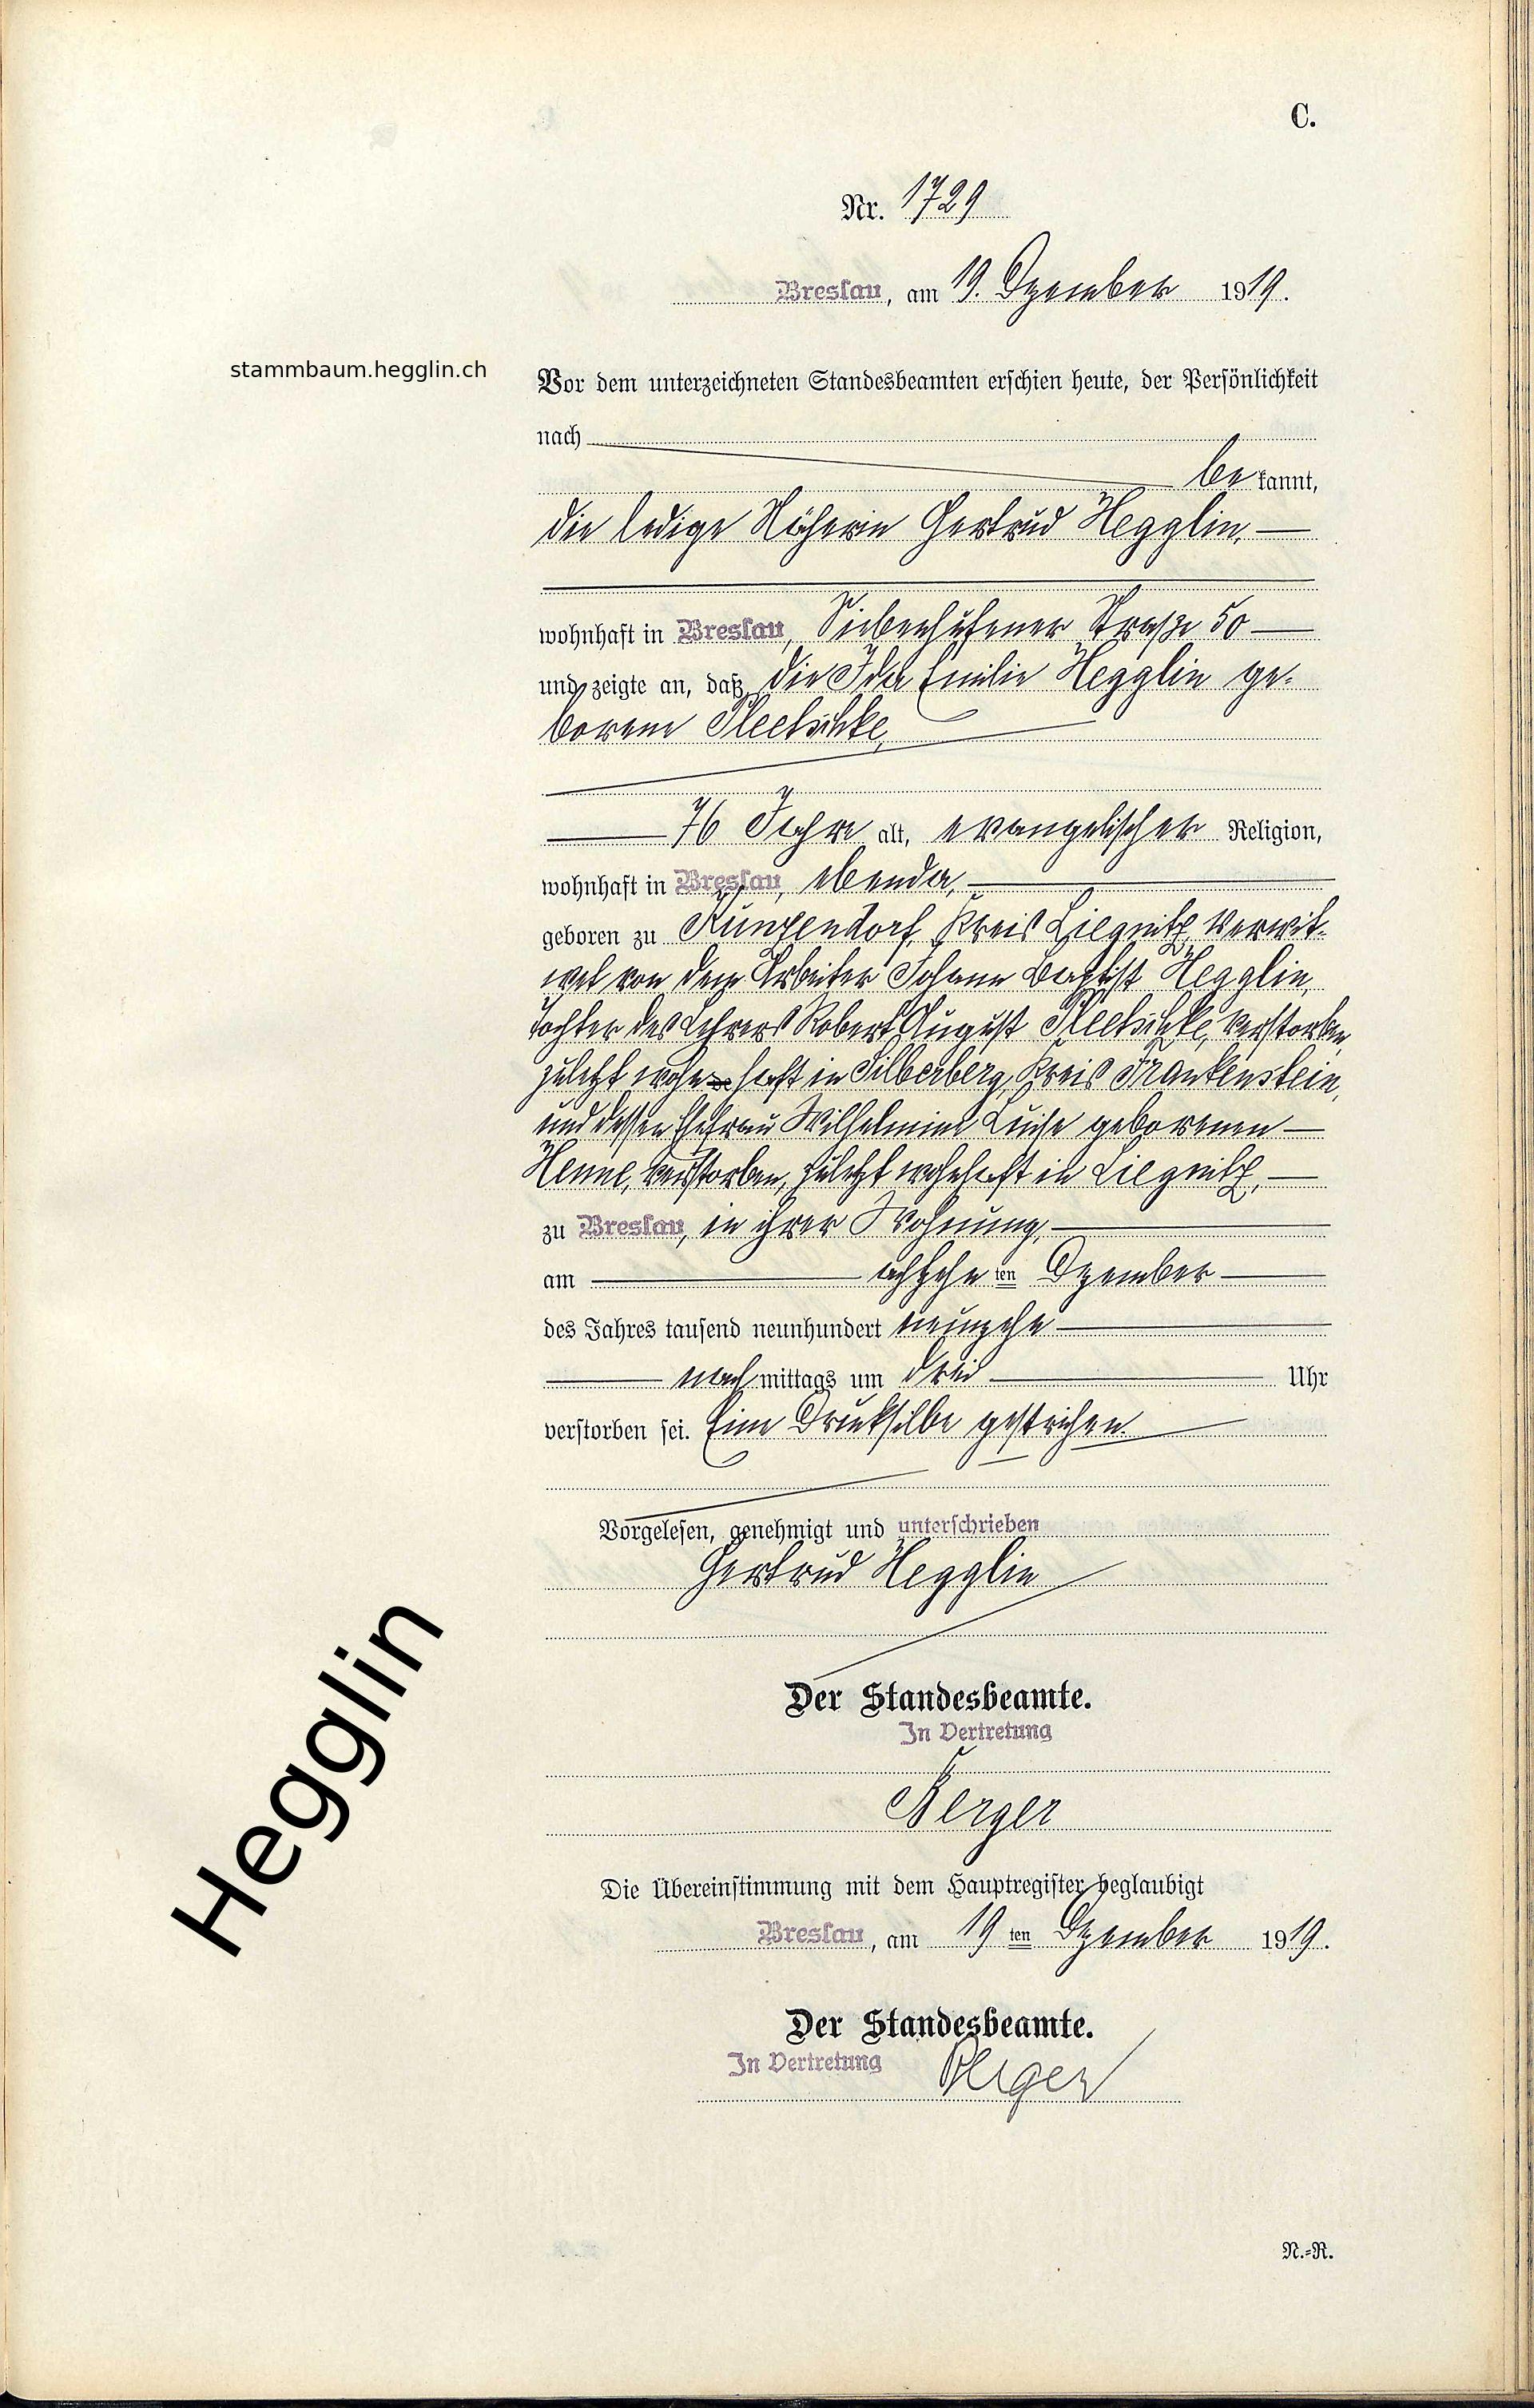 C.
Nr. 1729
Breslau, am 19. Dezember 1919.
stammbaum.hegglin.ch
Vor dem unterzeichneten Standesbeamten erschien heute, der Persönlichkeit
nach
be kannt,
die ledige Näherin Gertrud Hegglin,
wohnhaft in Breslau, Siebenhufener Straße 50
und zeigte an, daß die Ida Emilie Hegglin ge-
borene
76 Jahre alt, evangelischer Religion,
wohnhaft in Breslau, ebenda,
geboren zu Kunzendorf, Kreis Liegnitz, verwit-
wet von dem Arbeiter Johann Baptist Hegglin,
Tochter des Lehrers Robert August verstorben
zuletzt wohnhaft in Silberberg, Kreis Frankenstein,
und dessen Ehefrau Wilhelmine Luise geborenen
Henne, verstorben, zuletzt wohnhaft in Liegnitz,
zu Breslau, in ihrer Wohnung,
am achtzehn ten Dezember
des Jahres tausend neunhundert neunzehn
nach mittags um drei Uhr
verstorben sei. Eine Drucksilbe gestrichen.
Vorgelesen, genehmigt und unterschrieben
Gertrud Hegglin
Der Standesbeamte.
In Vertretung
Berger
Hegglin
Die Übereinstimmung mit dem Hauptregister beglaubigt
Breslau, am 19 ten Dezember 1919.
Der Standesbeamte.
In Vertretung Berger
N.-R.